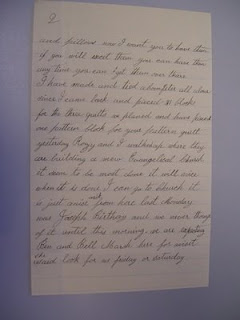 2
and pillows now I want you to have them
if you will want them you can have them
any time you can get them over there
I have made and tied a comforter all alone
since I came back and pieced a block
for the three quilts we planned and have pieced
one pattern block for your pattern quilt
yesterday Rozy and I walked up where they
are building a new Evangelical Church
it seem to be most done it will nice
when it is done I can go to church it
is just across from here last monday
was Joseph Birthday and we never thought
of it until this morning. we are expecting
Ben and Bell March here for visit
she said look for us friday or saturday